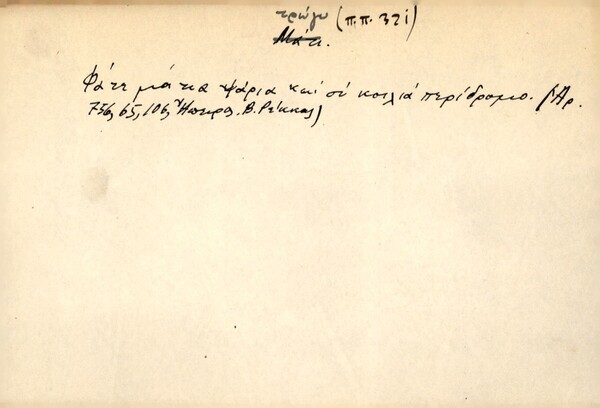 τρώγω (π.π. 321)
Μάτι.
Φάτε μάτια ψάρια καί σύ κοιλιά περίδρομο. (Ἀρ.
756, 65, 106, Ἤπειρος. Β. Ρέκκας)